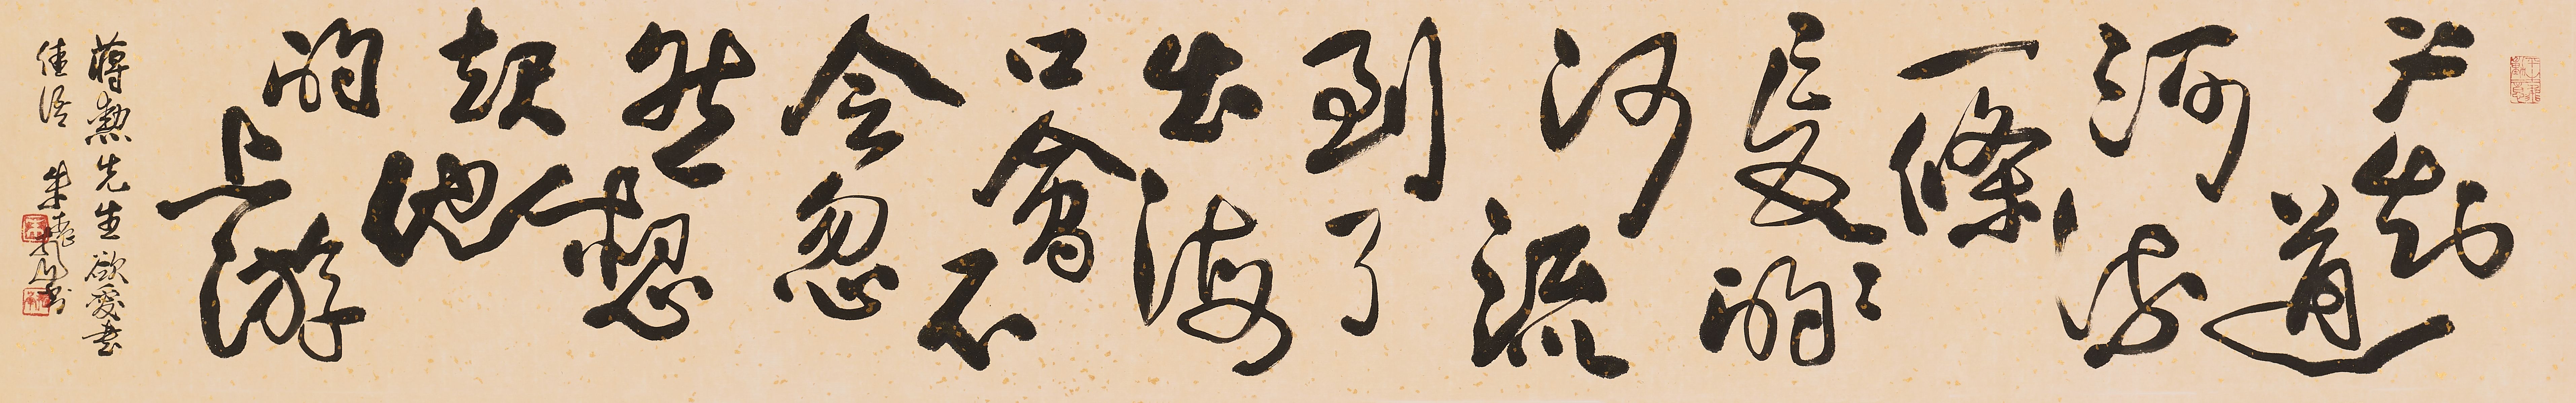 道
河
一條
長長的
河流
到了
出海
口會不
會忽
然想
起他
的上游
蔣勳先生欲愛書
佳語 朱振南書